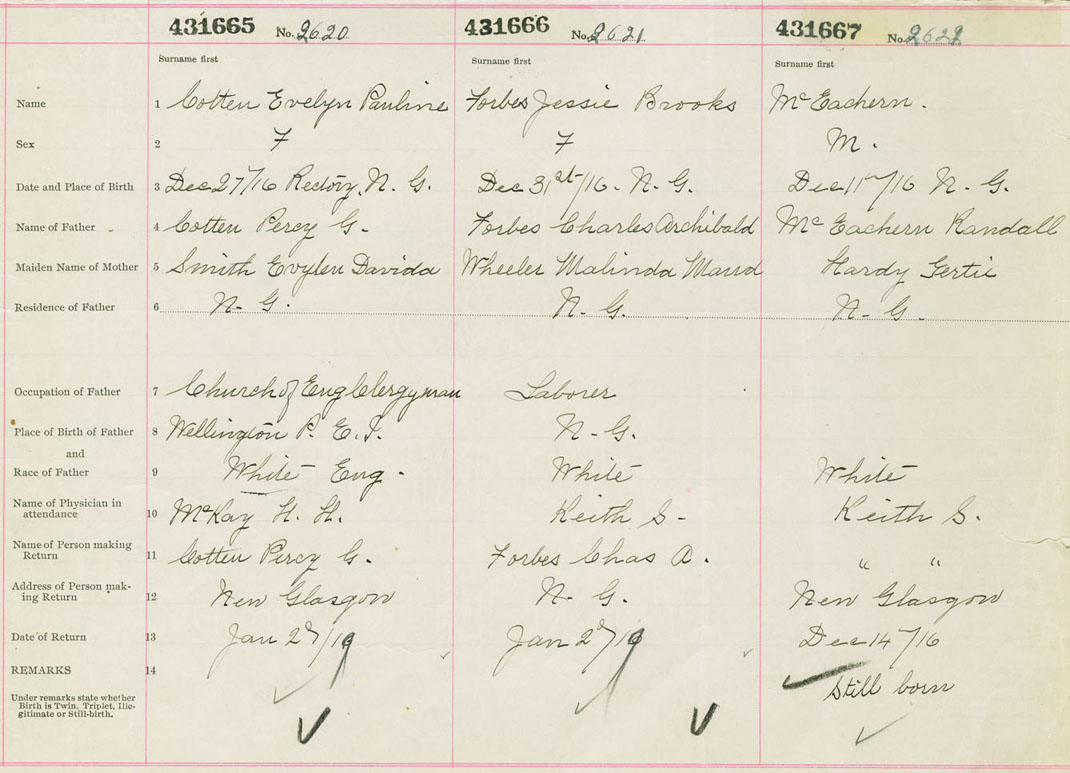 431665 No. 2620 431666 No. 2621 431667 No. 2622
Surname first Surname first Surname first
Name 1 Cotten Evelyn Pauline Forbes Jessie Brooks McEachern.
Sex 2 F F M.
Date and Place of Birth 3 Dec 27/16 Rectory, N. G. Dec 31st/16. N. G. Dec 11th/16 N. G.
Name of Father 4 Cotten Percy G. Forbes Charles Archibald McEachern Randall
Maiden Name of Mother 5 Smith Evylen Davida Wheeler Malinda Maud Hardy Gertie
Residence of Father 6 N. G. N. G. N. G.
Occupation of Father 7 Church of Eng Clergyman Laborer
Place of Birth of Father 8 Wellington P. E. I. N. G.
and
Race of Father 9 White Eng. White White
Name of Physician in
attendance 10 McKay H. H. Keith S. Keith S.
Name of Person making
Return 11 Cotten Percy G. Forbes Chas A. " "
Address of Person mak-
ing Return 12 New Glasgow N. G. New Glasgow
Date of Return 13 Jan 2 Jan 2 Dec 14/16
REMARKS 14 Still born
Under remarks state whether
Birth is Twin, Triplet, Ille-
gitimate or Still-birth.